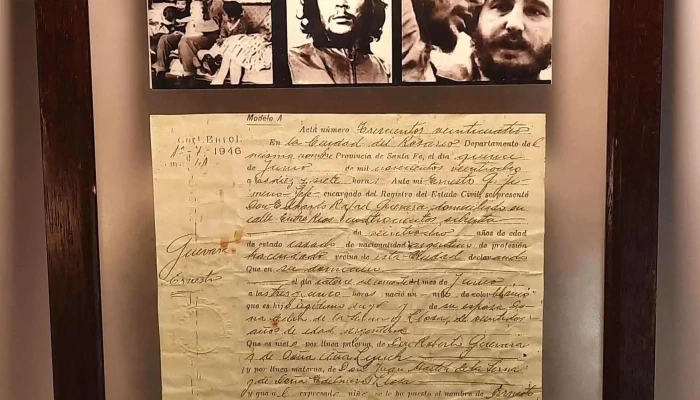 Modelo A
Acta número Trescientos veinticuatro
En la Ciudad del Rosario Departamento del
mismo nombre Provincia de Santa Fe, el día quince
de Junio de mil novecientos veintiocho
a las diez y siete horas: Ante mi Ernesto
Jefe encargado del Registro del Estado Civil, se presentó
Don Ernesto Rafael Guevara domiciliado en
calle Entre Rios cuatrocientos ochenta
de veintiocho años de edad
de estado casado de nacionalidad argentino de profesión
hacendado vecino de esta Ciudad declarando
Que en su domicilio
el día catorce del corriente mes de Junio
a las tres y cinco horas nació un niño de color blanco
que es hijo legítimo suyo y de su esposa Do
na Celia de la Serna y Llosa, de veintidos
años de edad argentina
Que es nieto por línea paterna, de Don Roberto Guevara
y de Doña Ana Lynch
y por línea materna, de Don Juan Martín de la Serna
y de Doña Edelmira Llosa
y que al expresado niño se le ha puesto el nombre de Ernesto
1946
Guevara
Ernesto